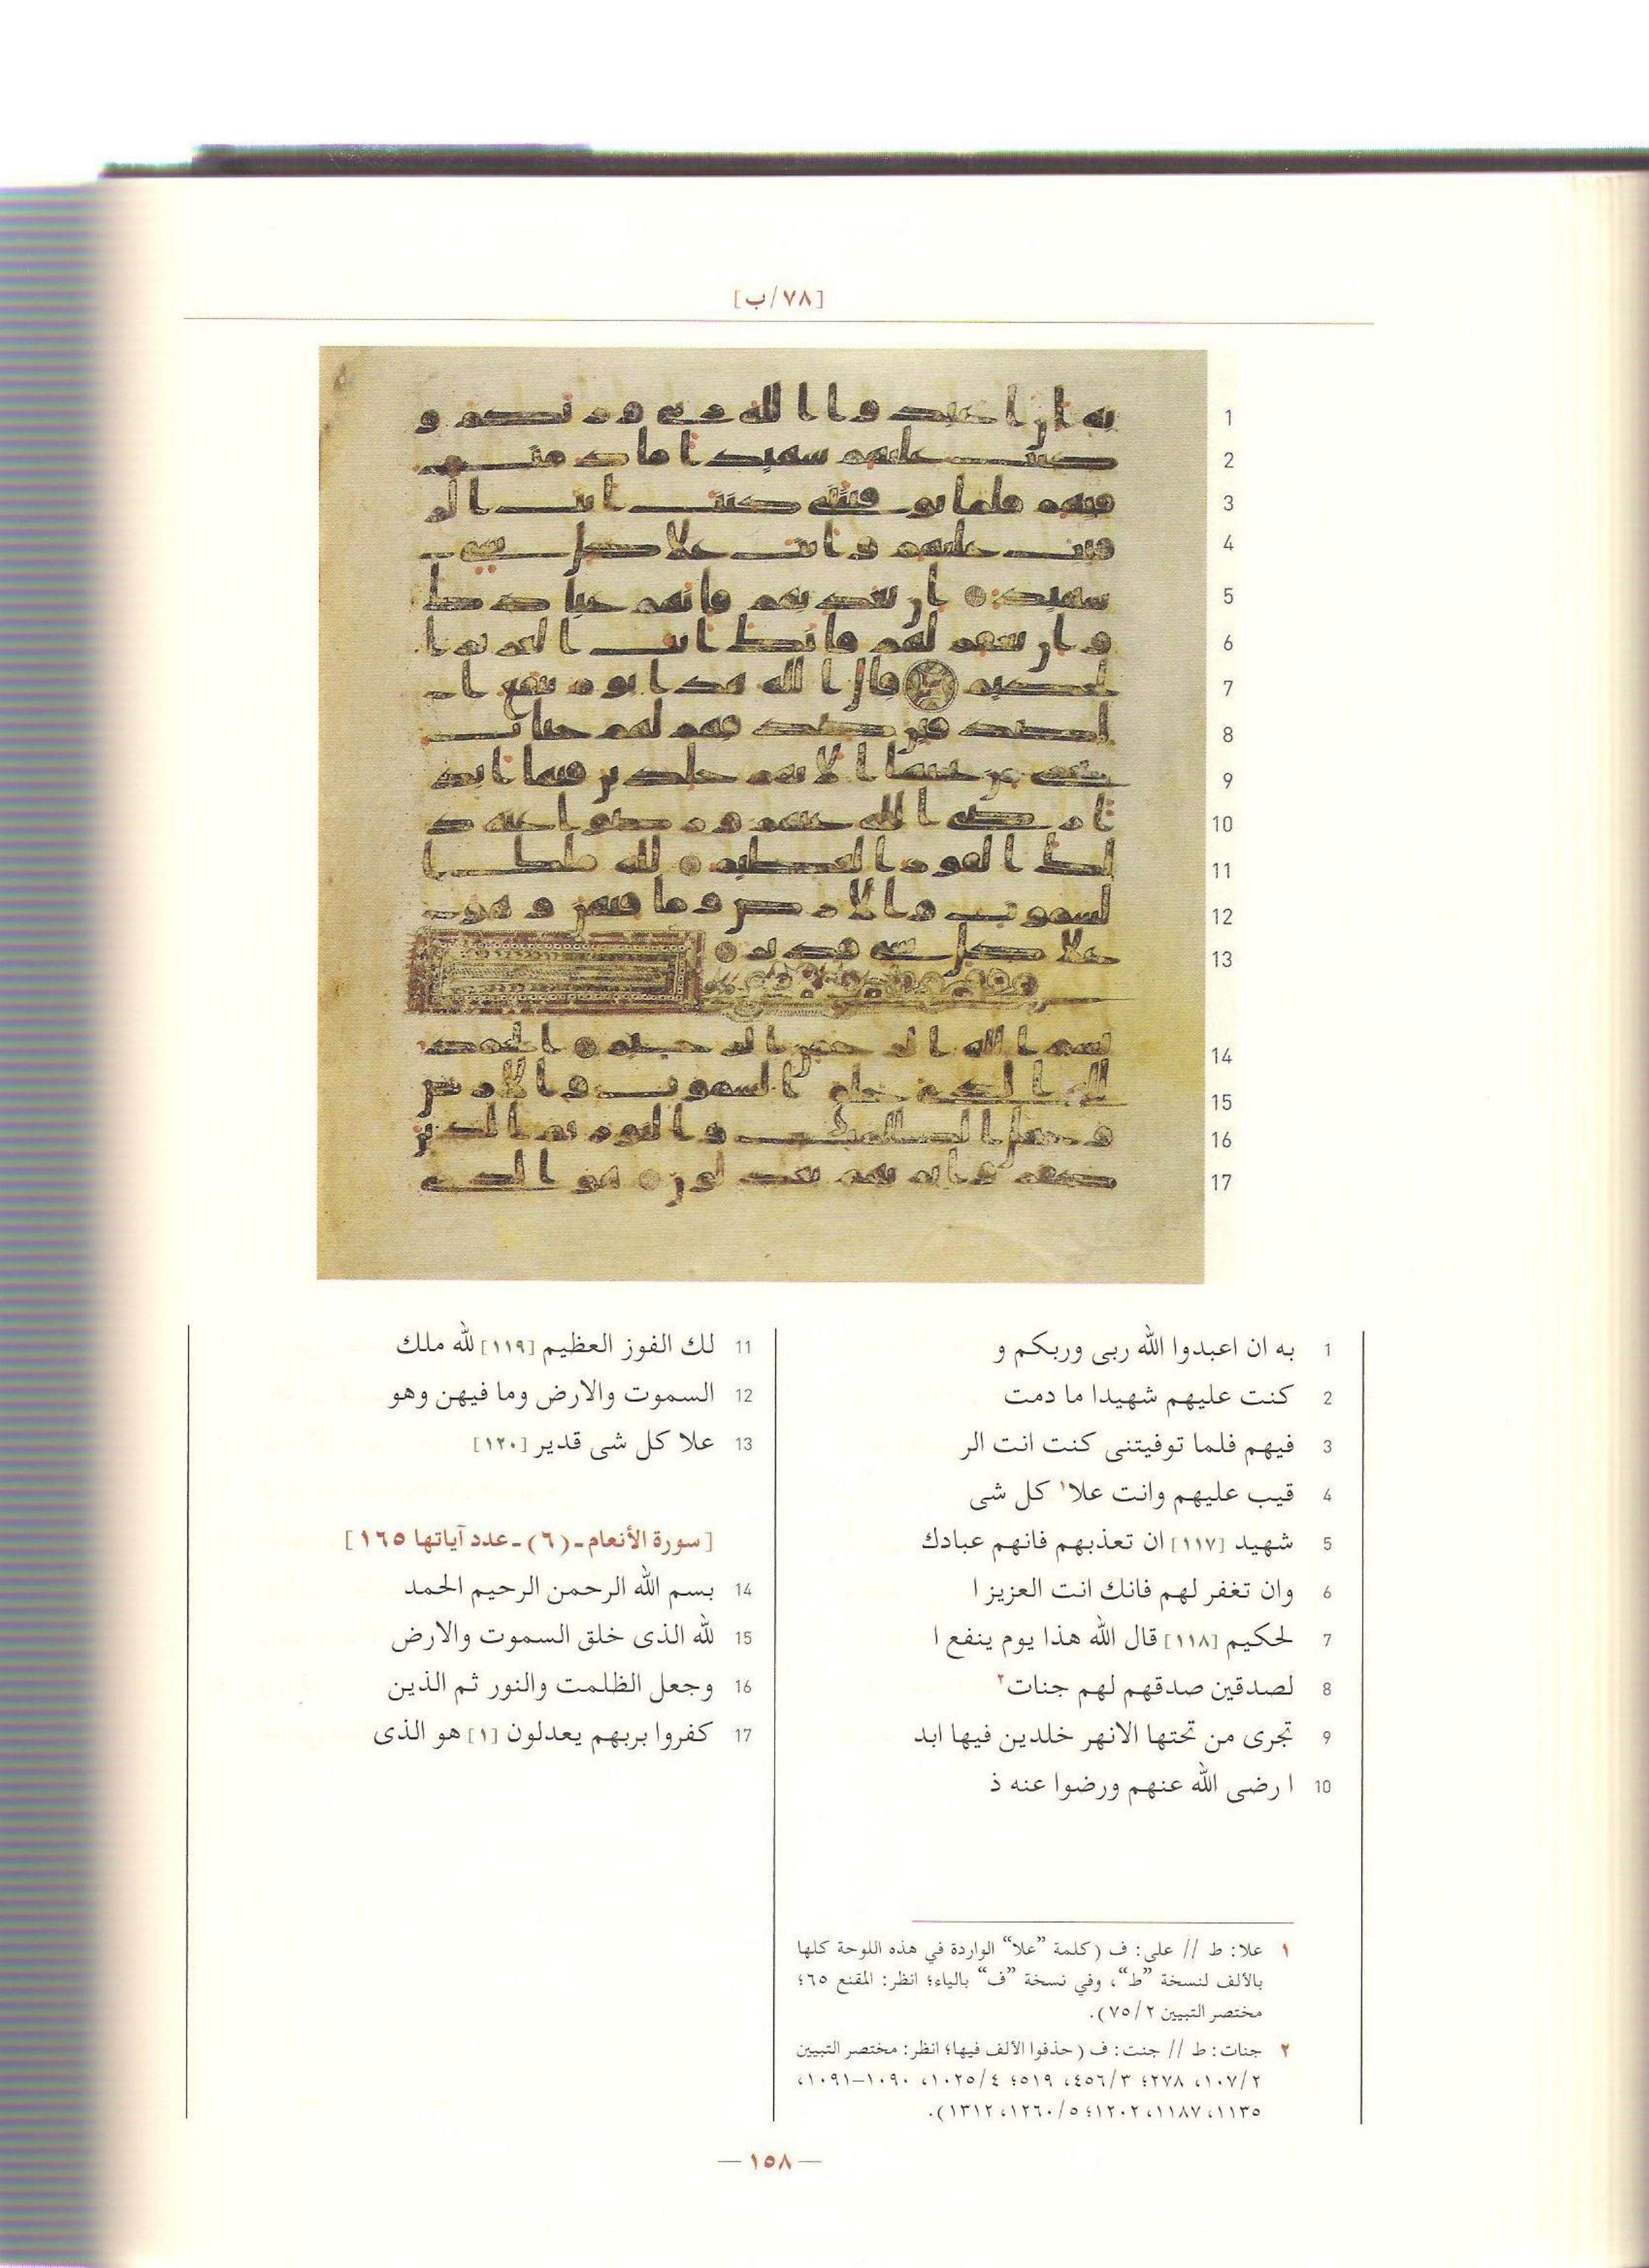 [٧٨/ب]
1 به ان اعبدوا الله ربى وربكم و
2 كنت عليهم شهيدا ما دمت
3 فيهم فلما توفيتنى كنت انت الر
4 قيب عليهم وانت علا١ كل شى
5 شهيد [١١٧] ان تعذبهم فانهم عبادك
6 وان تغفر لهم فانك انت العزيز ا
7 لحكيم [١١٨] قال الله هذا يوم ينفع ا
8 لصدقين صدقهم لهم جنات٢
9 تجرى من تحتها الانهر خلدين فيها ابد
10 ا رضى الله عنهم ورضوا عنه ذ
11 لك الفوز العظيم [١١٩] لله ملك
12 السموت والارض وما فيهن وهو
13 علا كل شى قدير [١٢٠]
[سورة الأنعام ـ (٦) ـ عدد آياتها ١٦٥]
14 بسم الله الرحمن الرحيم الحمد
15 لله الذى خلق السموت والارض
16 وجعل الظلمت والنور ثم الذين
17 كفروا بربهم يعدلون [١] هو الذى
١ علا: ط // على: ف (كلمة ”علا“ الواردة في هذه اللوحة كلها
بالألف لنسخة ”ط“، وفي نسخة ”ف“ بالياء؛ انظر: المقنع ٦٥؛
مختصر التبيين ٧٥/٢).
٢ جنات: ط // جنت: ف (حذفوا الألف فيها؛ انظر: مختصر التبيين
١٠٧/٢، ٢٧٨؛ ٤٥٦/٣، ٥١٩؛ ١٠٢٥/٤، ١٠٩٠–١٠٩١،
١١٣٥، ١١٨٧، ١٢٠٢؛ ١٢٦٠/٥، ١٣١٢).
— ١٥٨ —